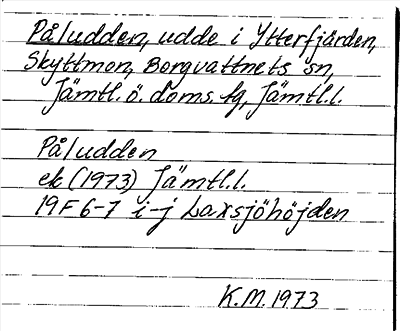 Påludden, udde i Ytterfjärden,
Skyttmon, Borgvattnets sn,
Jämtl.ö. doms. fg, Jämtl.l.
Påludden
ek (1973) Jämtl.l.
19F 6-7 i-j Laxsjöhöjden
K.M. 1973